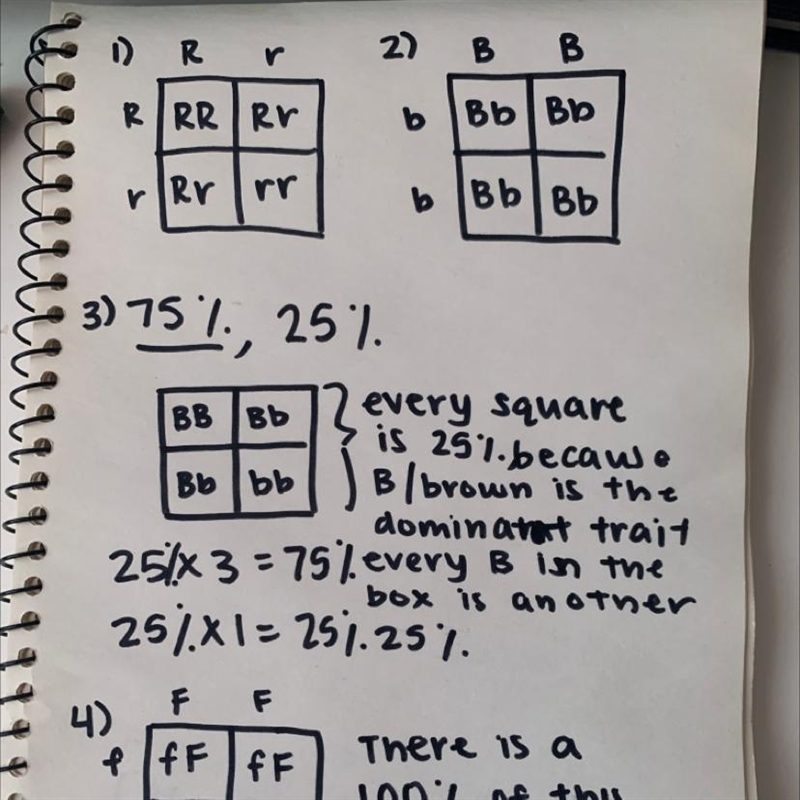 1) R r 2) B B
R RR Rr b Bb Bb
r Rr rr b Bb Bb
3) 75%, 25%.
BB Bb every square
is 25%. because
Bb bb B/brown is the
dominant trait
25% x 3 = 75% every B in the
box is another
25% x 1 = 25%. 25%.
4) F F
f fF fF There is a
100% of this